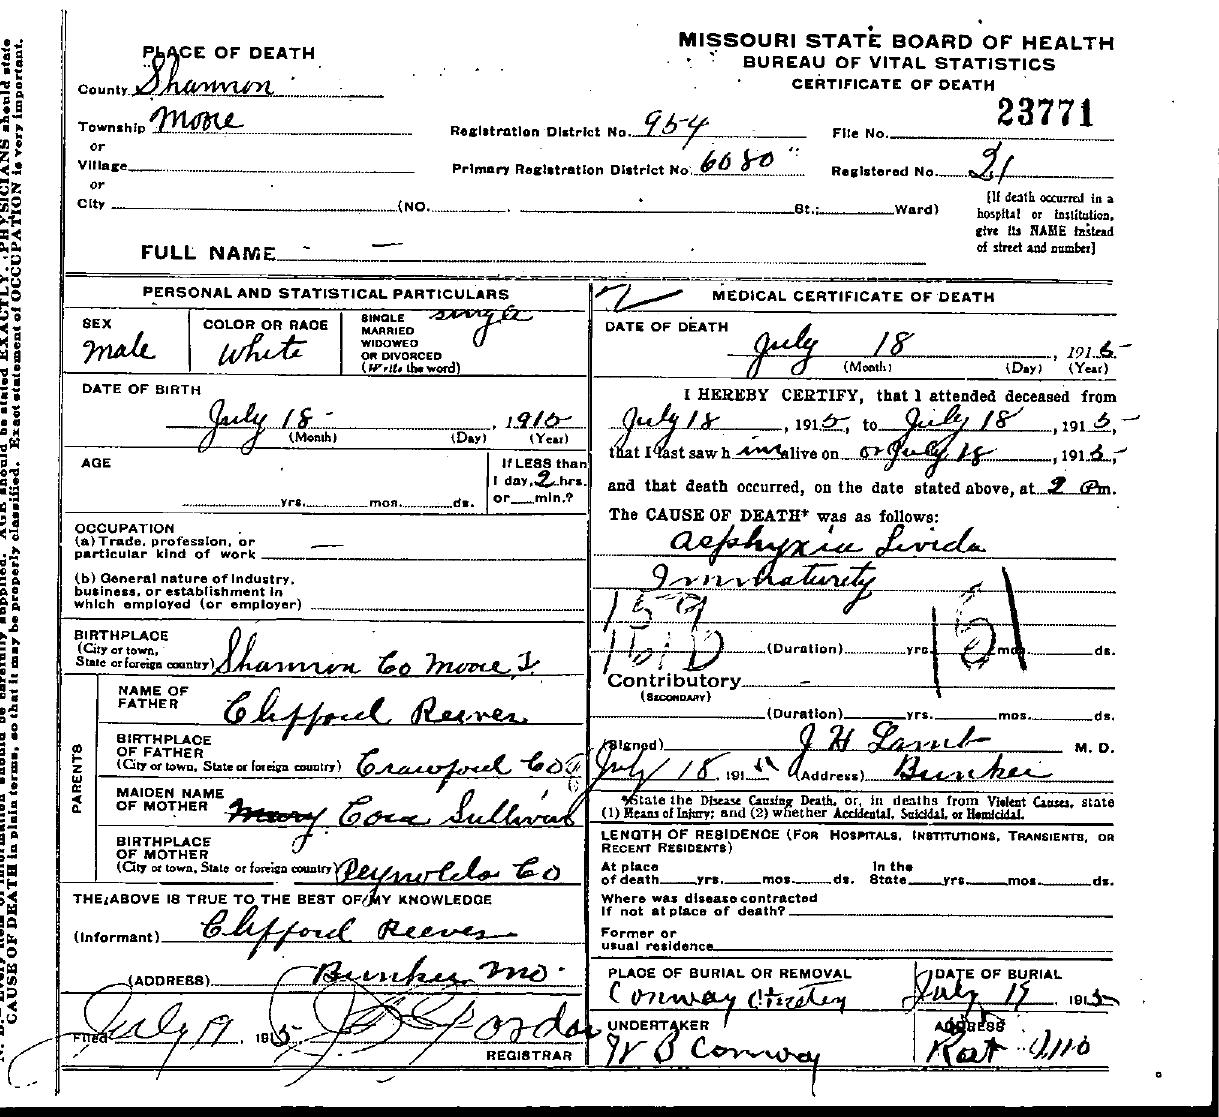 MISSOURI STATE BOARD OF HEALTH
BUREAU OF VITAL STATISTICS
CERTIFICATE OF DEATH
PLACE OF DEATH
County Shannon
Township Moore
or
Village
or
City (NO. St.; Ward)
Registration District No. 954
Primary Registration District No. 6080
File No. 23771
Registered No. 21
[If death occurred in a
hospital or institution,
give its NAME instead
of street and number]
FULL NAME
PERSONAL AND STATISTICAL PARTICULARS
SEX
male
COLOR OR RACE
White
SINGLE single
MARRIED
WIDOWED
OR DIVORCED
(Write the word)
DATE OF BIRTH
July 18 , 1915
(Month) (Day) (Year)
AGE
yrs. mos. ds.
If LESS than
1 day, 2 hrs.
or min.?
OCCUPATION
(a) Trade, profession, or
particular kind of work —
(b) General nature of industry,
business, or establishment in
which employed (or employer)
BIRTHPLACE
(City or town,
State or foreign country) Shannon Co Moore T.
PARENTS
NAME OF
FATHER Clifford Reeves
BIRTHPLACE
OF FATHER
(City or town, State or foreign country) Crawford Co
MAIDEN NAME
OF MOTHER Mary Cora Sullivan
BIRTHPLACE
OF MOTHER
(City or town, State or foreign country) Reynolds Co
THE ABOVE IS TRUE TO THE BEST OF MY KNOWLEDGE
(Informant) Clifford Reeves
(ADDRESS) Bunker Mo.
Filed July 19, 1915
REGISTRAR
MEDICAL CERTIFICATE OF DEATH
DATE OF DEATH
July 18 , 1915
(Month) (Day) (Year)
I HEREBY CERTIFY, that I attended deceased from
July 18 , 1915, to July 18 , 1915,
that I last saw h im alive on July 18 , 1915,
and that death occurred, on the date stated above, at 2 Pm.
The CAUSE OF DEATH* was as follows:
Asphyxia Livida
Immaturity
159
161D 151
(Duration) yrs. mos. ds.
Contributory –
(SECONDARY)
(Duration) yrs. mos. ds.
(Signed) J H Lamb M. D.
July 18, 191 (Address) Bunker
*State the Disease Causing Death, or, in deaths from Violent Causes, state
(1) Means of Injury; and (2) whether Accidental, Suicidal, or Homicidal.
LENGTH OF RESIDENCE (FOR HOSPITALS, INSTITUTIONS, TRANSIENTS, OR
RECENT RESIDENTS)
At place In the
of death yrs. mos. ds. State yrs. mos. ds.
Where was disease contracted
if not at place of death?
Former or
usual residence
PLACE OF BURIAL OR REMOVAL
Conway
DATE OF BURIAL
July 19 1915
UNDERTAKER
W B Conway
ADDRESS
CAUSE OF DEATH in plain terms, so that it may be properly classified. Exact statement of OCCUPATION is very important.